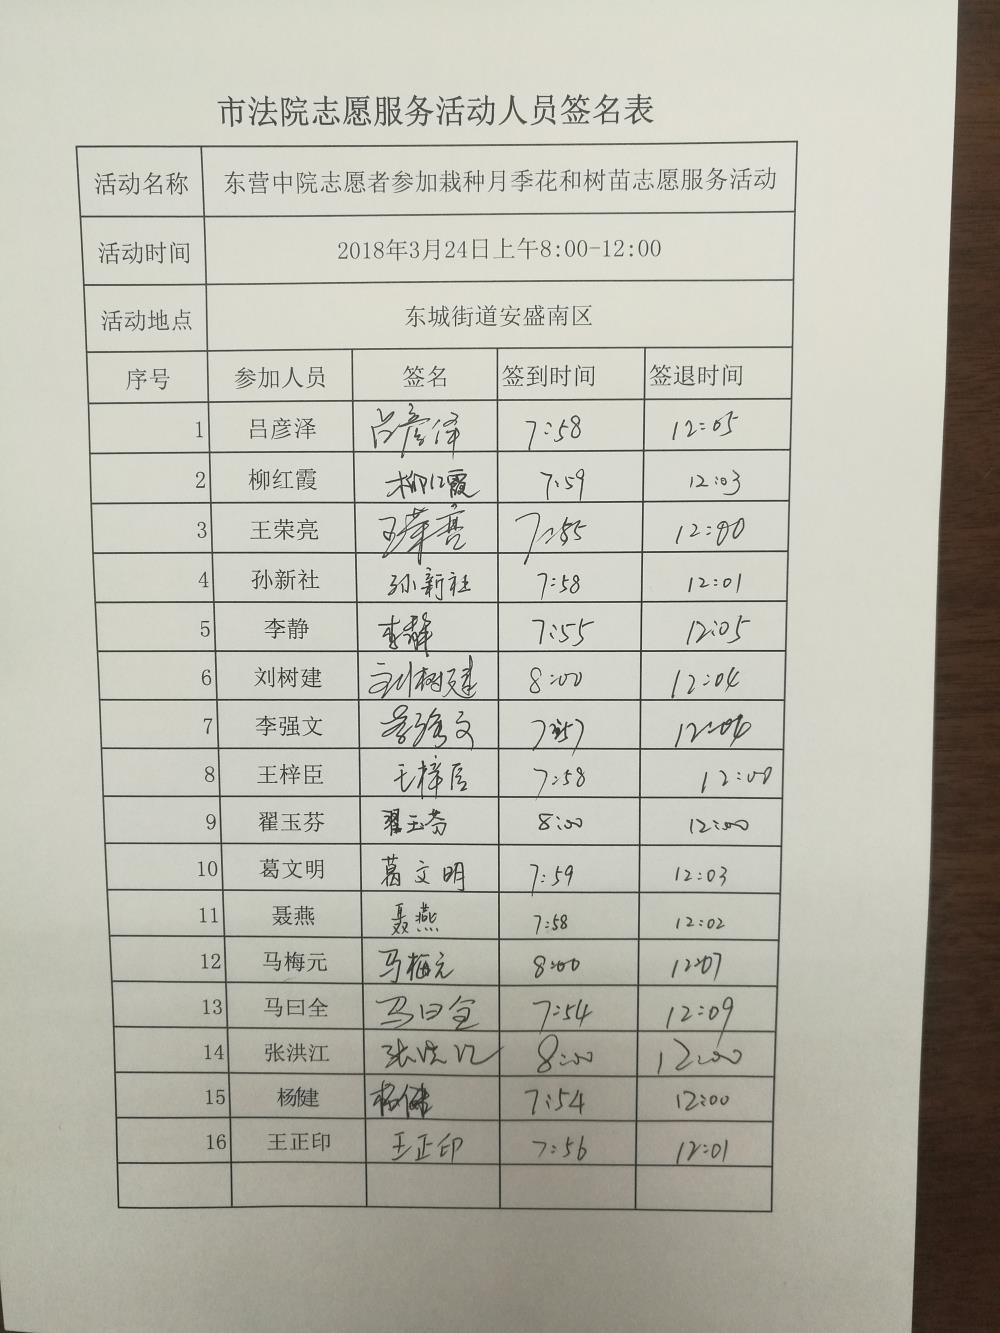 市法院志愿服务活动人员签名表
活动名称 东营中院志愿者参加栽种月季花和树苗志愿服务活动
活动时间 2018年3月24日上午8:00-12:00
活动地点 东城街道安盛南区
序号 参加人员 签名 签到时间 签退时间
1 吕彦泽 吕彦泽 7:58 12:05
2 柳红霞 柳红霞 7:59 12:03
3 王荣亮 王荣亮 7:55 12:00
4 孙新社 孙新社 7:58 12:01
5 李静 李静 7:55 12:05
6 刘树建 刘树建 8:00 12:04
7 李强文 李强文 7:57 12:04
8 王梓臣 王梓臣 7:58 12:00
9 翟玉芬 翟玉芬 8:00 12:00
10 葛文明 葛文明 7:59 12:03
11 聂燕 聂燕 7:58 12:02
12 马梅元 马梅元 8:00 12:07
13 马曰全 马曰全 7:54 12:09
14 张洪江 张洪江 8:00 12:00
15 杨健 杨健 7:54 12:00
16 王正印 王正印 7:56 12:01